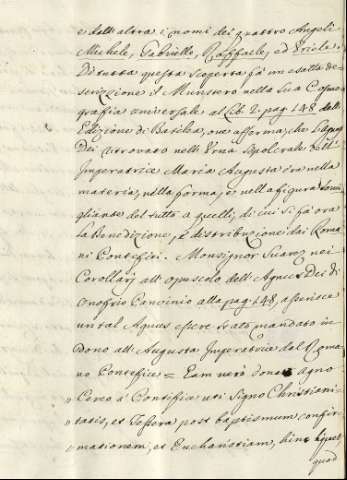 e dell'altra i nomi dei quattro Angeli
Michele, Gabriello, Raffaele, ed Uriele.
Di tutta questa scoperta fà un esatta de-
scrizione il Munstero nella sua Cosmo
grafia universale al lib. 2. pag. 148. della
Edizione di Basilea, ove afferma, che l'Agnus
Dei ritrovato nell'Urna Sepolcrale dell'
Imperatrice Maria Augusta era nella
materia, nella forma, e nella figura somi
gliante del tutto a quelli, di cui si fà ora
la Benedizione, e distribuzione dai Roma
ni Pontefici. Monsignor Suarez nei
Corollarj all'opuscolo dell'Agnus Dei di
Onofrio Panvinio alla pag. 148, asserisce
un tal Agnus essere stato mandato in
dono all'Augusta Imperatrice dal Roma
no Pontefice = Eam verò donatam agno
Cereo à Pontifice uti Signo Christiani
tatis, et Tessera post baptismum confir
mationem, et Eucharistiam, hinc liquet
quod